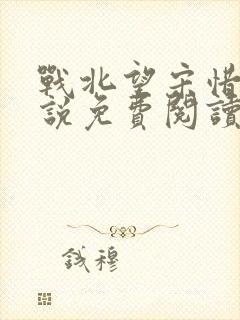 戰北望宋惜
說免費閱讀
錢穆